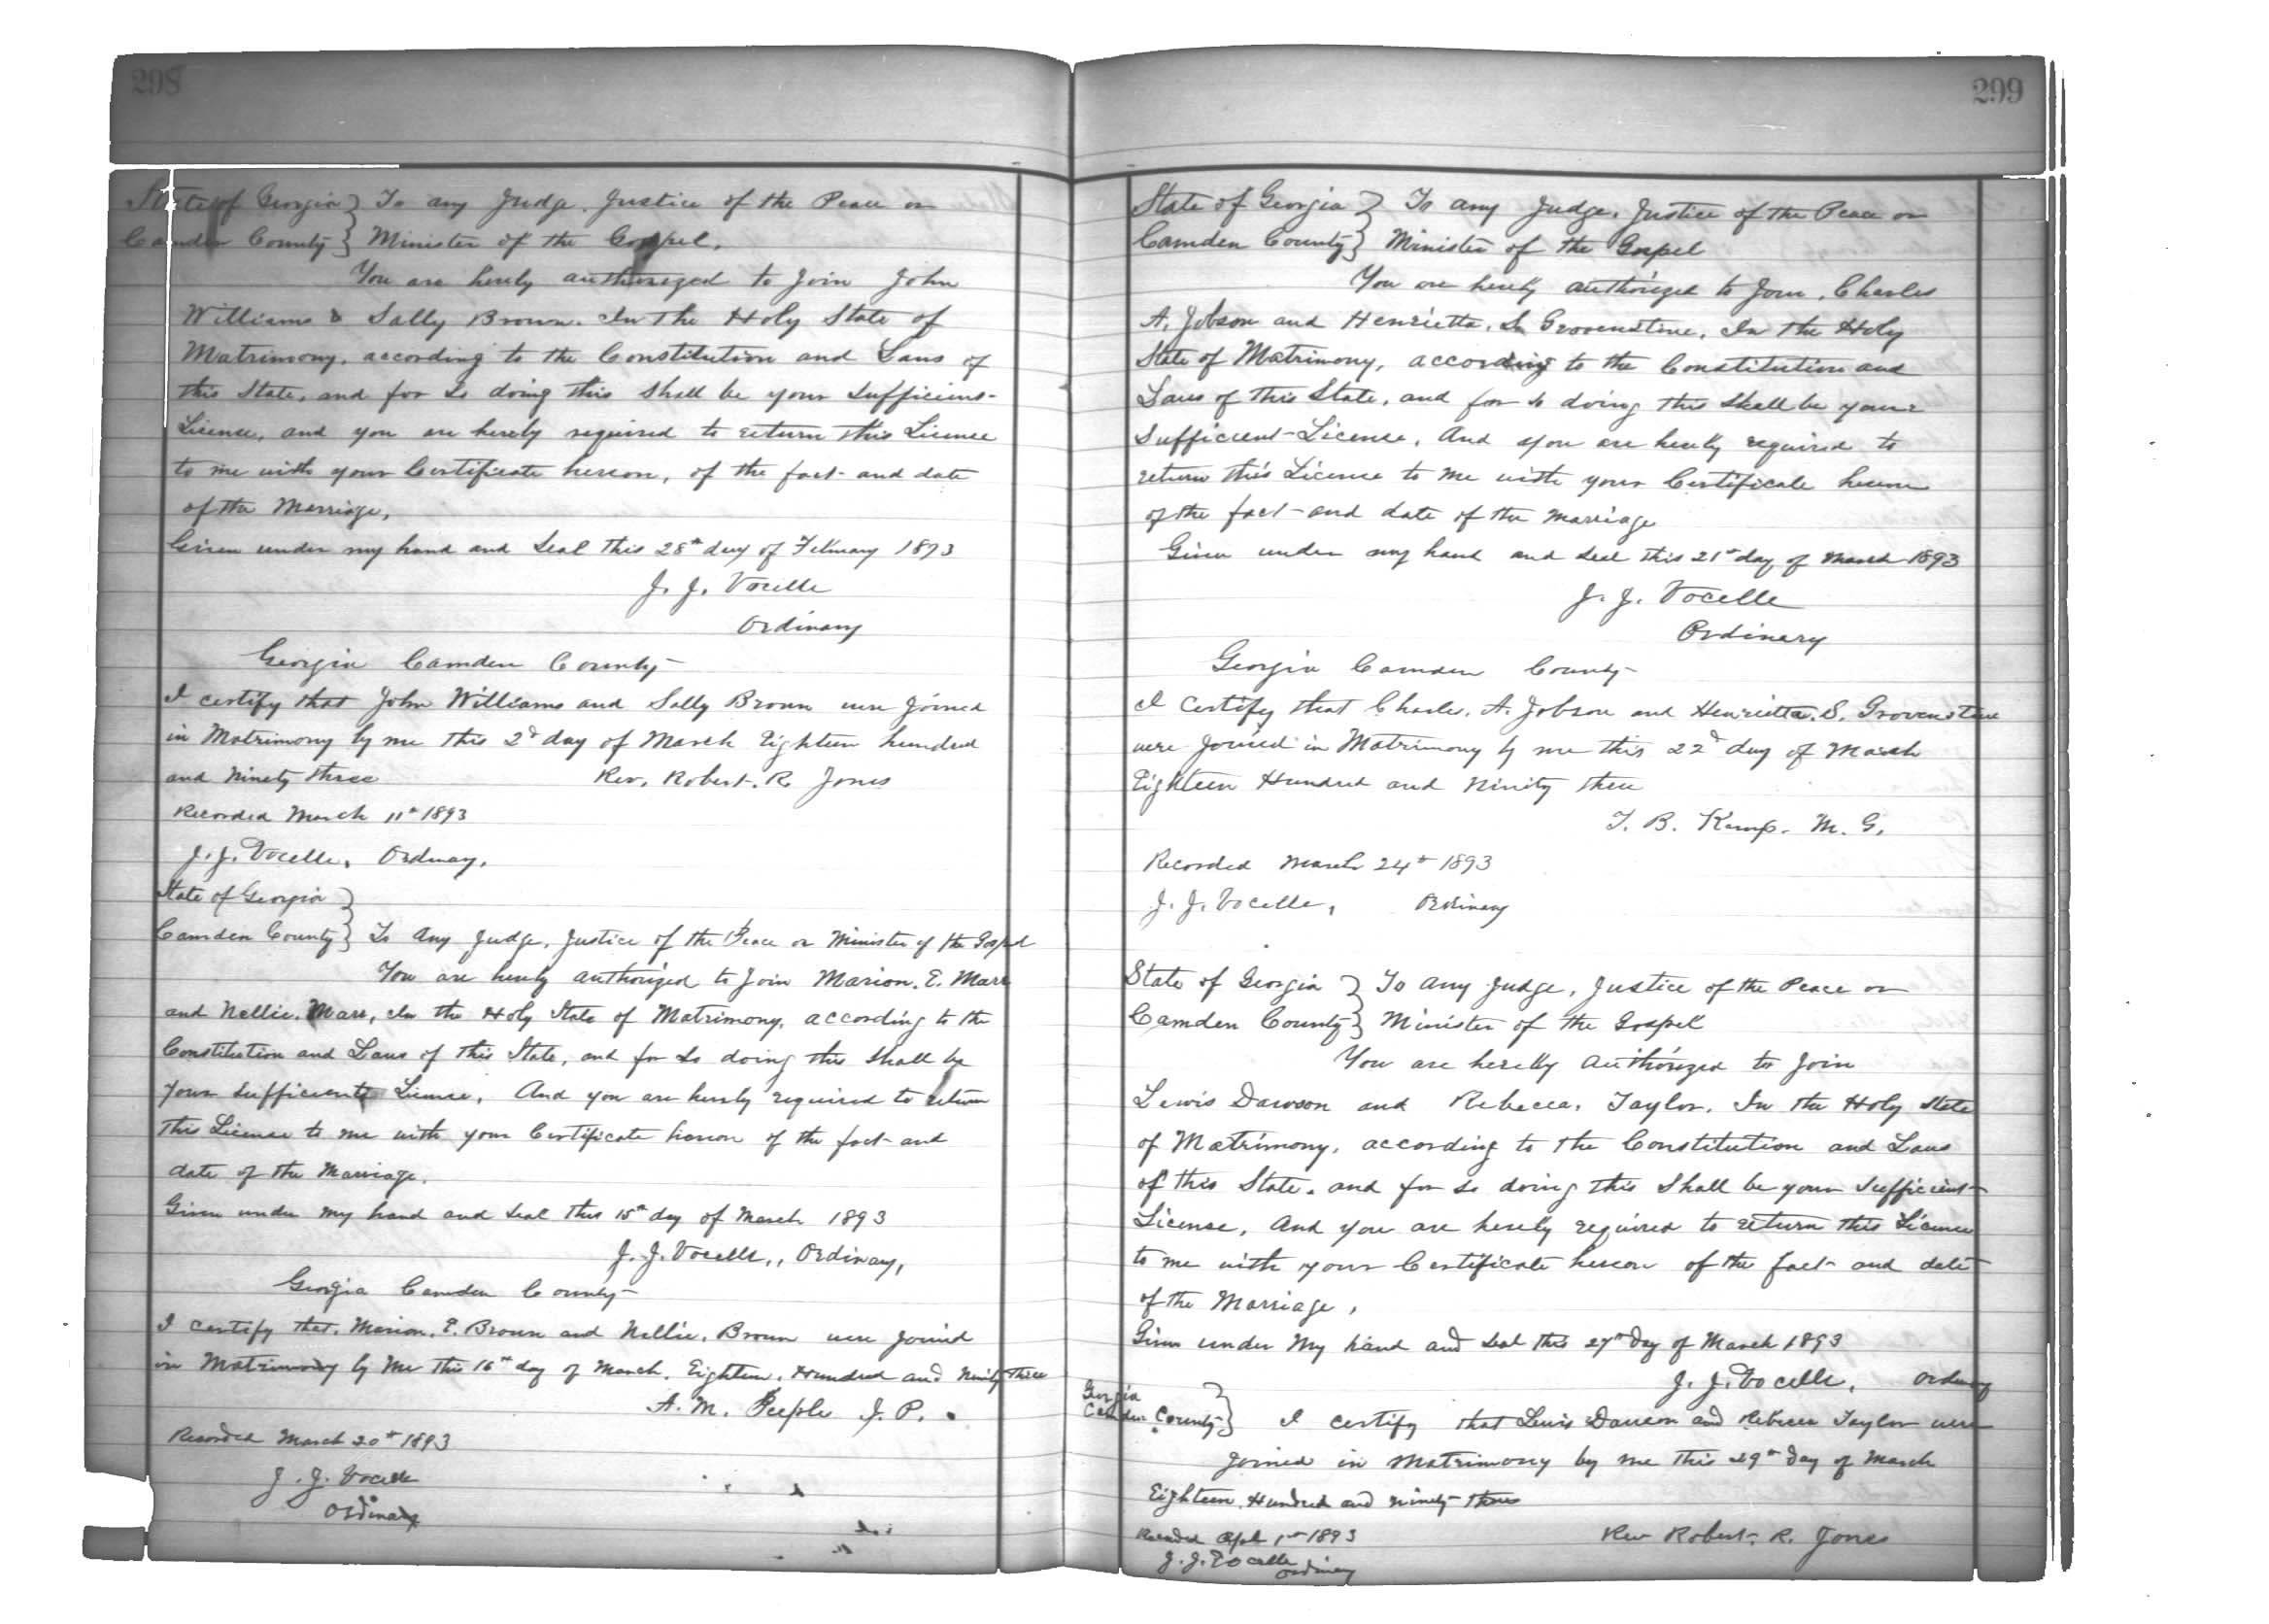 298
State of Georgia } To any Judge, Justice of the Peace or
Camden County } Minister of the Gospel.
You are hereby authorized to Join John
Williams & Sally Brown. In The Holy State of
Matrimony, according to the Constitution and Laws of
this State, and for so doing this shall be your sufficient
License, and you are hereby required to return this License
to me with your Certificate hereon, of the fact and date
of the Marriage,
Given under my hand and seal this 28th day of February 1893
J. J. Vocelle
Ordinary
Georgia Camden County
I certify that John Williams and Sally Brown were joined
in Matrimony by me this 2d day of March Eighteen hundred
and ninety three Rev. Robert. R. Jones
Recorded March 11th 1893
J. J. Vocelle, Ordinary.
State of Georgia }
Camden County } To Any Judge, Justice of the Peace or Minister of the Gospel
You are hereby authorized to Join Marion. E. Marr
and Nellie. Marr, In the Holy State of Matrimony, according to the
Constitution and Laws of this State, and for so doing this shall be
your sufficient License, And you are hereby required to return
this License to me with your Certificate hereon of the fact and
date of the Marriage.
Given under my hand and seal this 15th day of March 1893
J. J. Vocelle, Ordinary,
Georgia Camden County
I certify that. Marion. E. Brown and Nellie. Brown were joined
in Matrimony by Me this 16th day of March. Eighteen. Hundred and Ninety three
A. M. Peeple J. P.
Recorded March 20th 1893
J. J. Vocelle
Ordinary
299
State of Georgia } To any Judge, Justice of the Peace or
Camden County } Minister of the Gospel
You are hereby authorized to Join. Charles
A. Jobson and Henrietta. S. Grovenstine, In the Holy
State of Matrimony, according to the Constitution and
Laws of this State, and for so doing this shall be your
Sufficient License, And you are hereby required to
return this License to me with your Certificate hereon
of the fact and date of the Marriage
Given under my hand and seal this 21st day of March 1893
J. J. Vocelle
Ordinary
Georgia Camden County
I certify that Charles. A. Jobson and Henrietta. S. Grovenstine
were joined in Matrimony by me this 22d day of March
Eighteen Hundred and Ninity three
T. B. Kemp. M. G.
Recorded March 24th 1893
J. J. Vocelle, Ordinary
State of Georgia } To any Judge, Justice of the Peace or
Camden County } Minister of the Gospel
You are hereby authorized to Join
Lewis Dawson and Rebecca. Taylor. In the Holy State
of Matrimony, according to the Constitution and Laws
of this State. and for so doing this shall be your sufficient
License, And you are hereby required to return this License
to me with your Certificate hereon of the fact and date
of the Marriage,
Given under My hand and seal this 27th day of March 1893
J. J. Vocelle, Ordinary
Georgia
Camden County } I certify that Lewis Dawson and Rebecca Taylor were
joined in matrimony by me this 29th day of March
Eighteen. Hundred and ninety three
Recorded Apl 1st 1893 Rev Robert. R. Jones
J. J. Vocelle
Ordinary